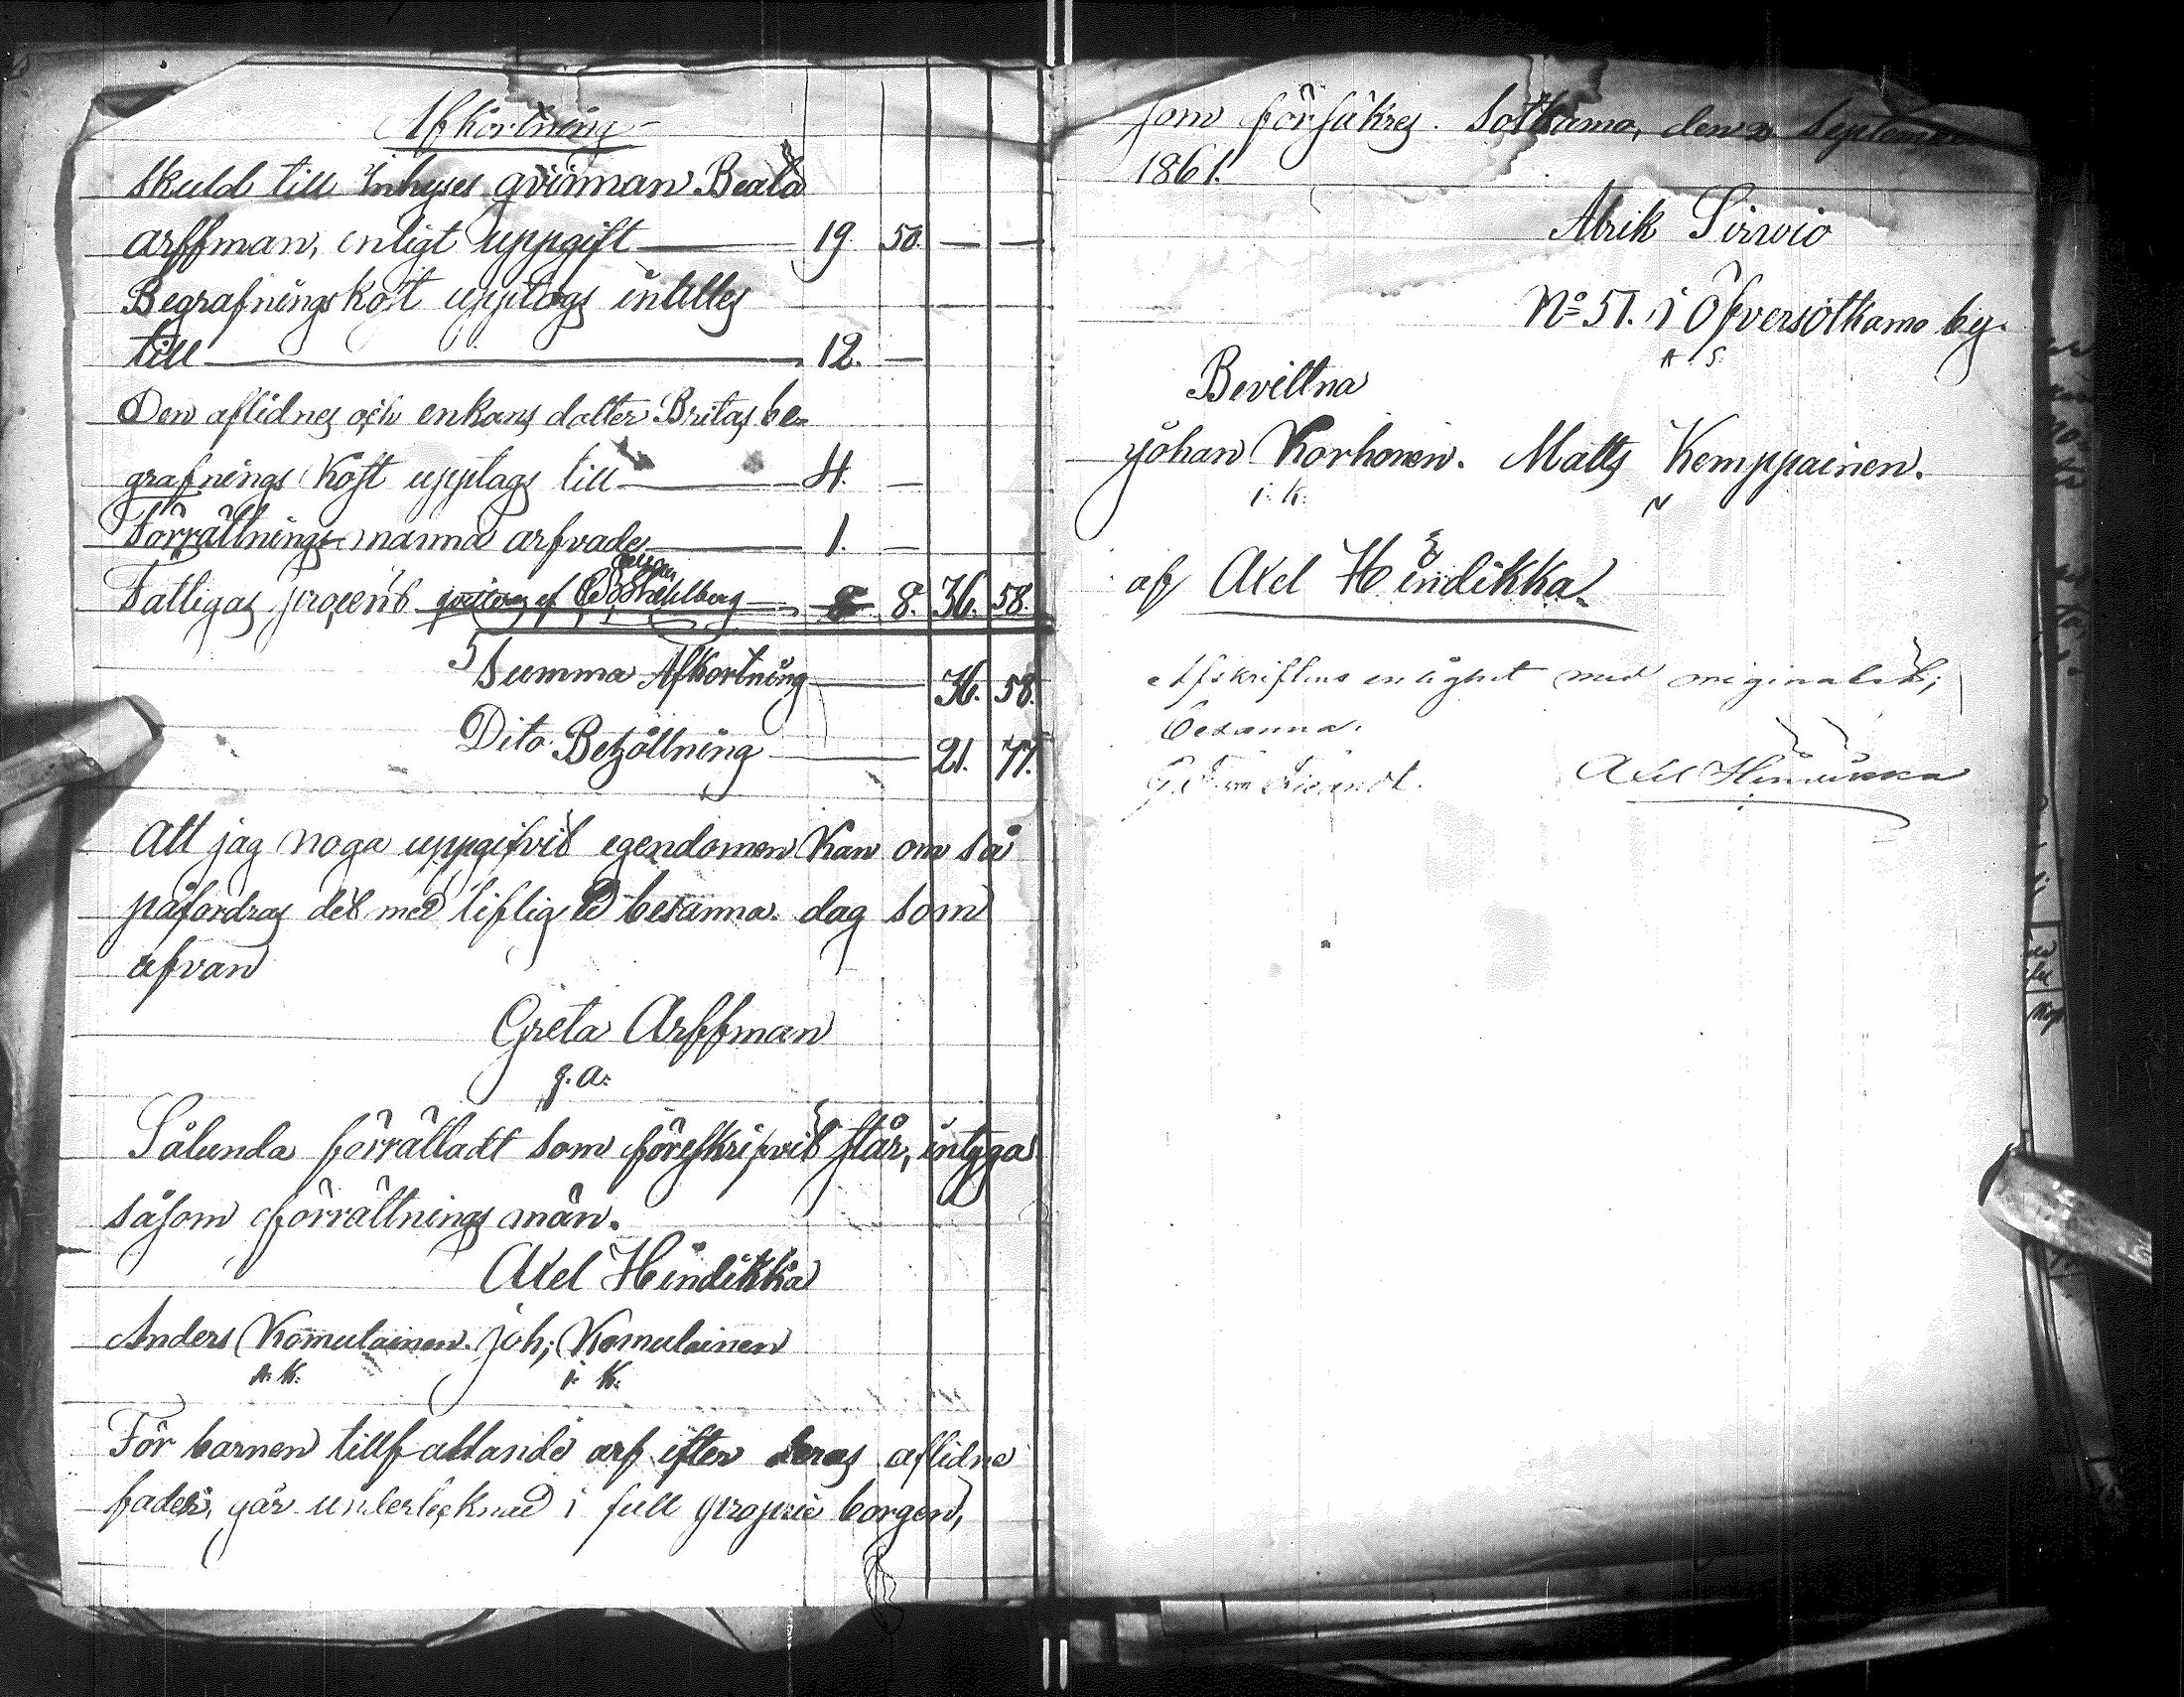 Afkortning
Skuld till Inhyses qvinnan Beata
Arffman, enligt uppgift — 19. 50. — —
Begrafningskost upptogs intilles
till — 12. —
Den aflidnes och enkans dotter Britas be-
grafnings kost upptags till — 4. —
Förrättnings manna arfvode — 1. —
Fattigas procent 8. 36. 58.
Summa Afkortning — 36. 58.
Dito Behöllning — 21. 77.
Att jag noga uppgifvit egendomen kan om så
påfordras det med liflig Ed besanna. dag som
ofvan
Greta Arffman
g. a.
Sålunda förrättadt som föreskrifvit står, intyga
såsom förrättnings män.
Axel Hindikka
Anders Komulainen. Joh; Komulainen
A. K. i. K.
För barnen tillfallande arf efter deras aflidne
fader, går undertecknad i full proprie borgen,
som försäkres. Sotkamo, den 2 September
1861.
Abrik Sirwio
No 51. i Öfversotkamo by.
A. S.
Bevittna
Johan Korhonen. Matts Kemppainen.
i. K.
af Axel Hindikka
Afskriftens enlighet med originalet;
besanna.
Axel Hindikka